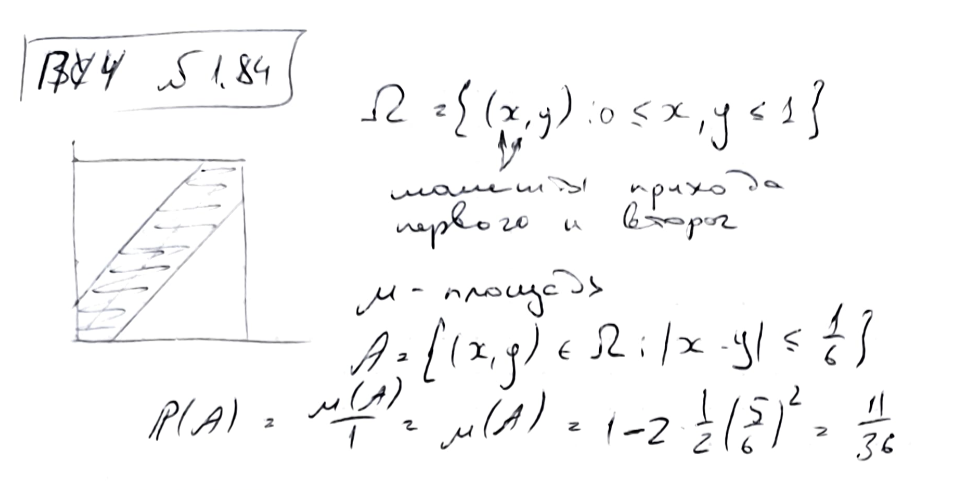 № 1.84
Ω = {(x, y) : 0 ≤ x, y ≤ 1}
моменты прихода
первого и второг
μ - площадь
A = {(x, y) ∈ Ω : |x - y| ≤ 1/6}
P(A) = μ(A)/1 = μ(A) = 1 - 2 · 1/2 (5/6)² = 11/36